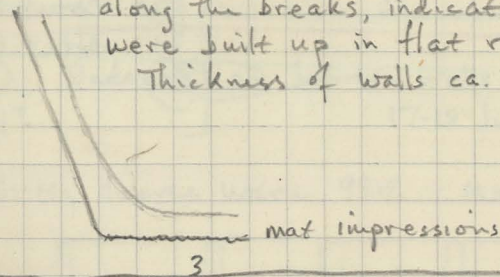 along the breaks, indicat
were built up in flat r
Thickness of walls ca.
mat impressions
3